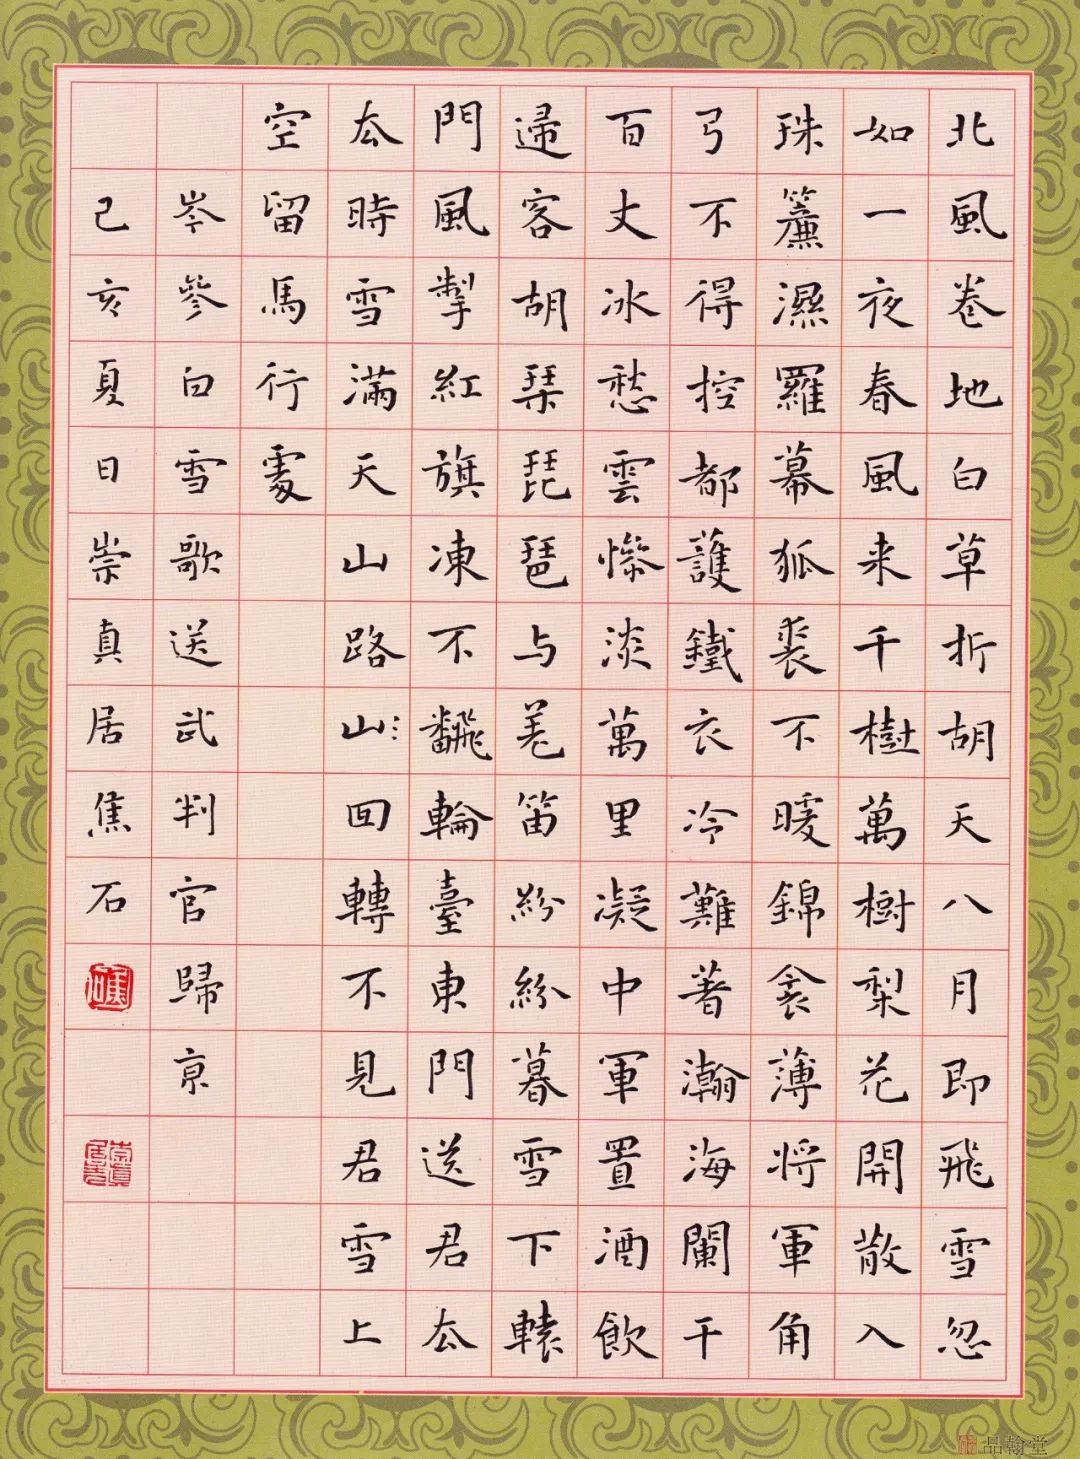 北風卷地白草折胡天八月即飛雪忽
如一夜春風来千樹萬樹梨花開散入
珠簾濕羅幕狐裘不暖錦衾薄將軍角
弓不得控都護鐵衣冷難著瀚海闌干
百丈冰愁雲慘淡萬里凝中軍置酒飲
歸客胡琴琵琶与羌笛紛紛暮雪下轅
門風掣紅旗凍不飜輪臺東門送君去
去時雪滿天山路山〻回轉不見君雪上
空留馬行處
岑參白雪歌送武判官歸京
己亥夏日崇真居焦石
品翰堂